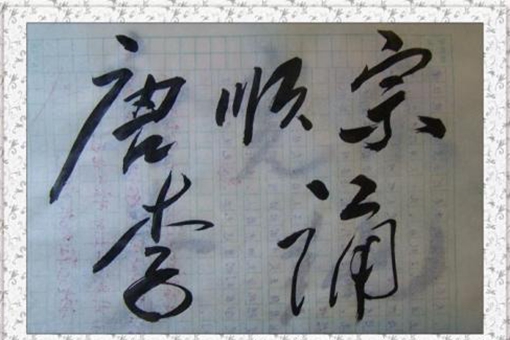 唐顺宗
李诵